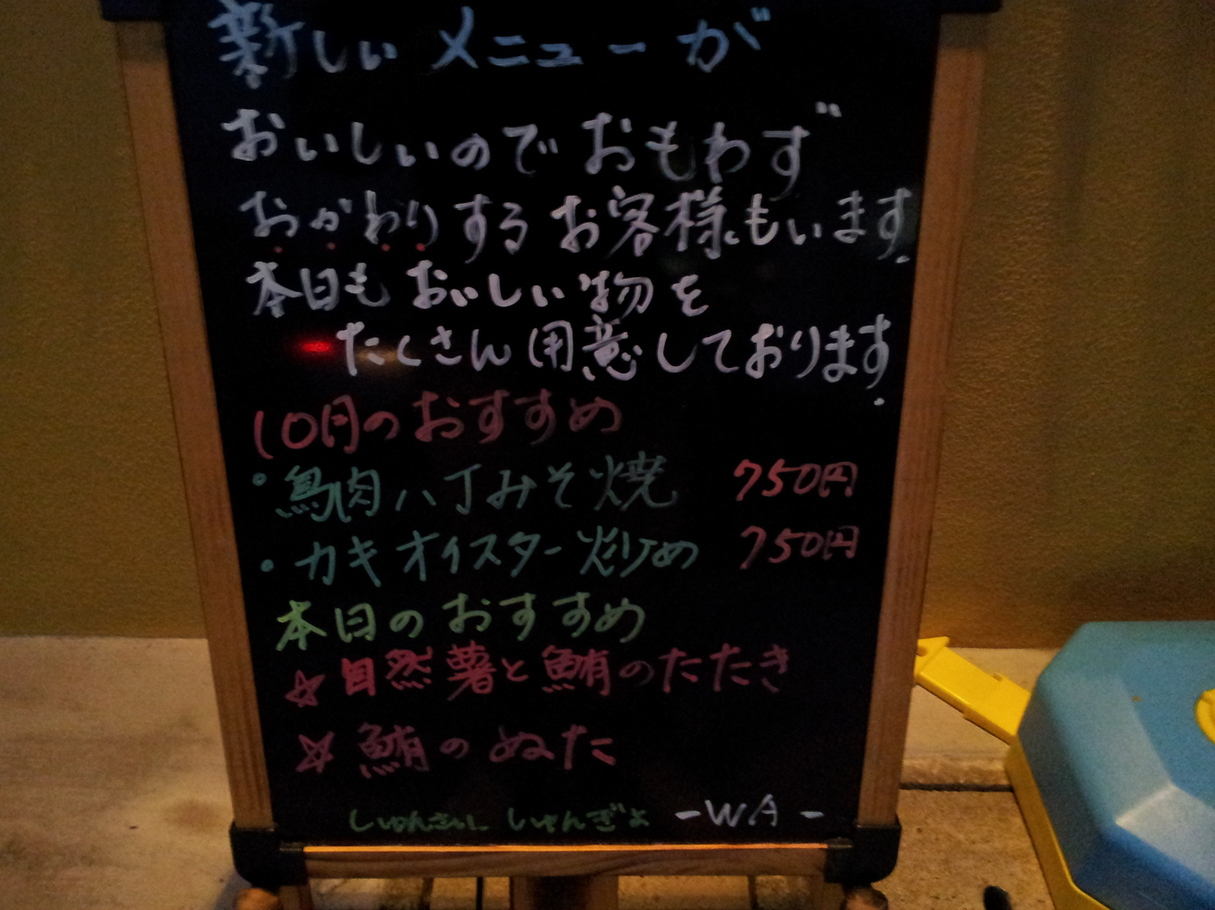 新しいメニューが
おいしいのでおもわず
おかわりするお客様もいます.
本日もおいしい物を
たくさん用意しております.
10月のおすすめ
・鳥肉八丁みそ焼 750円
・カキオイスター炒め 750円
本日のおすすめ
☆自然薯と鮪のたたき
☆鮪のぬた
しゅんさい しゅんぎょ -WA-